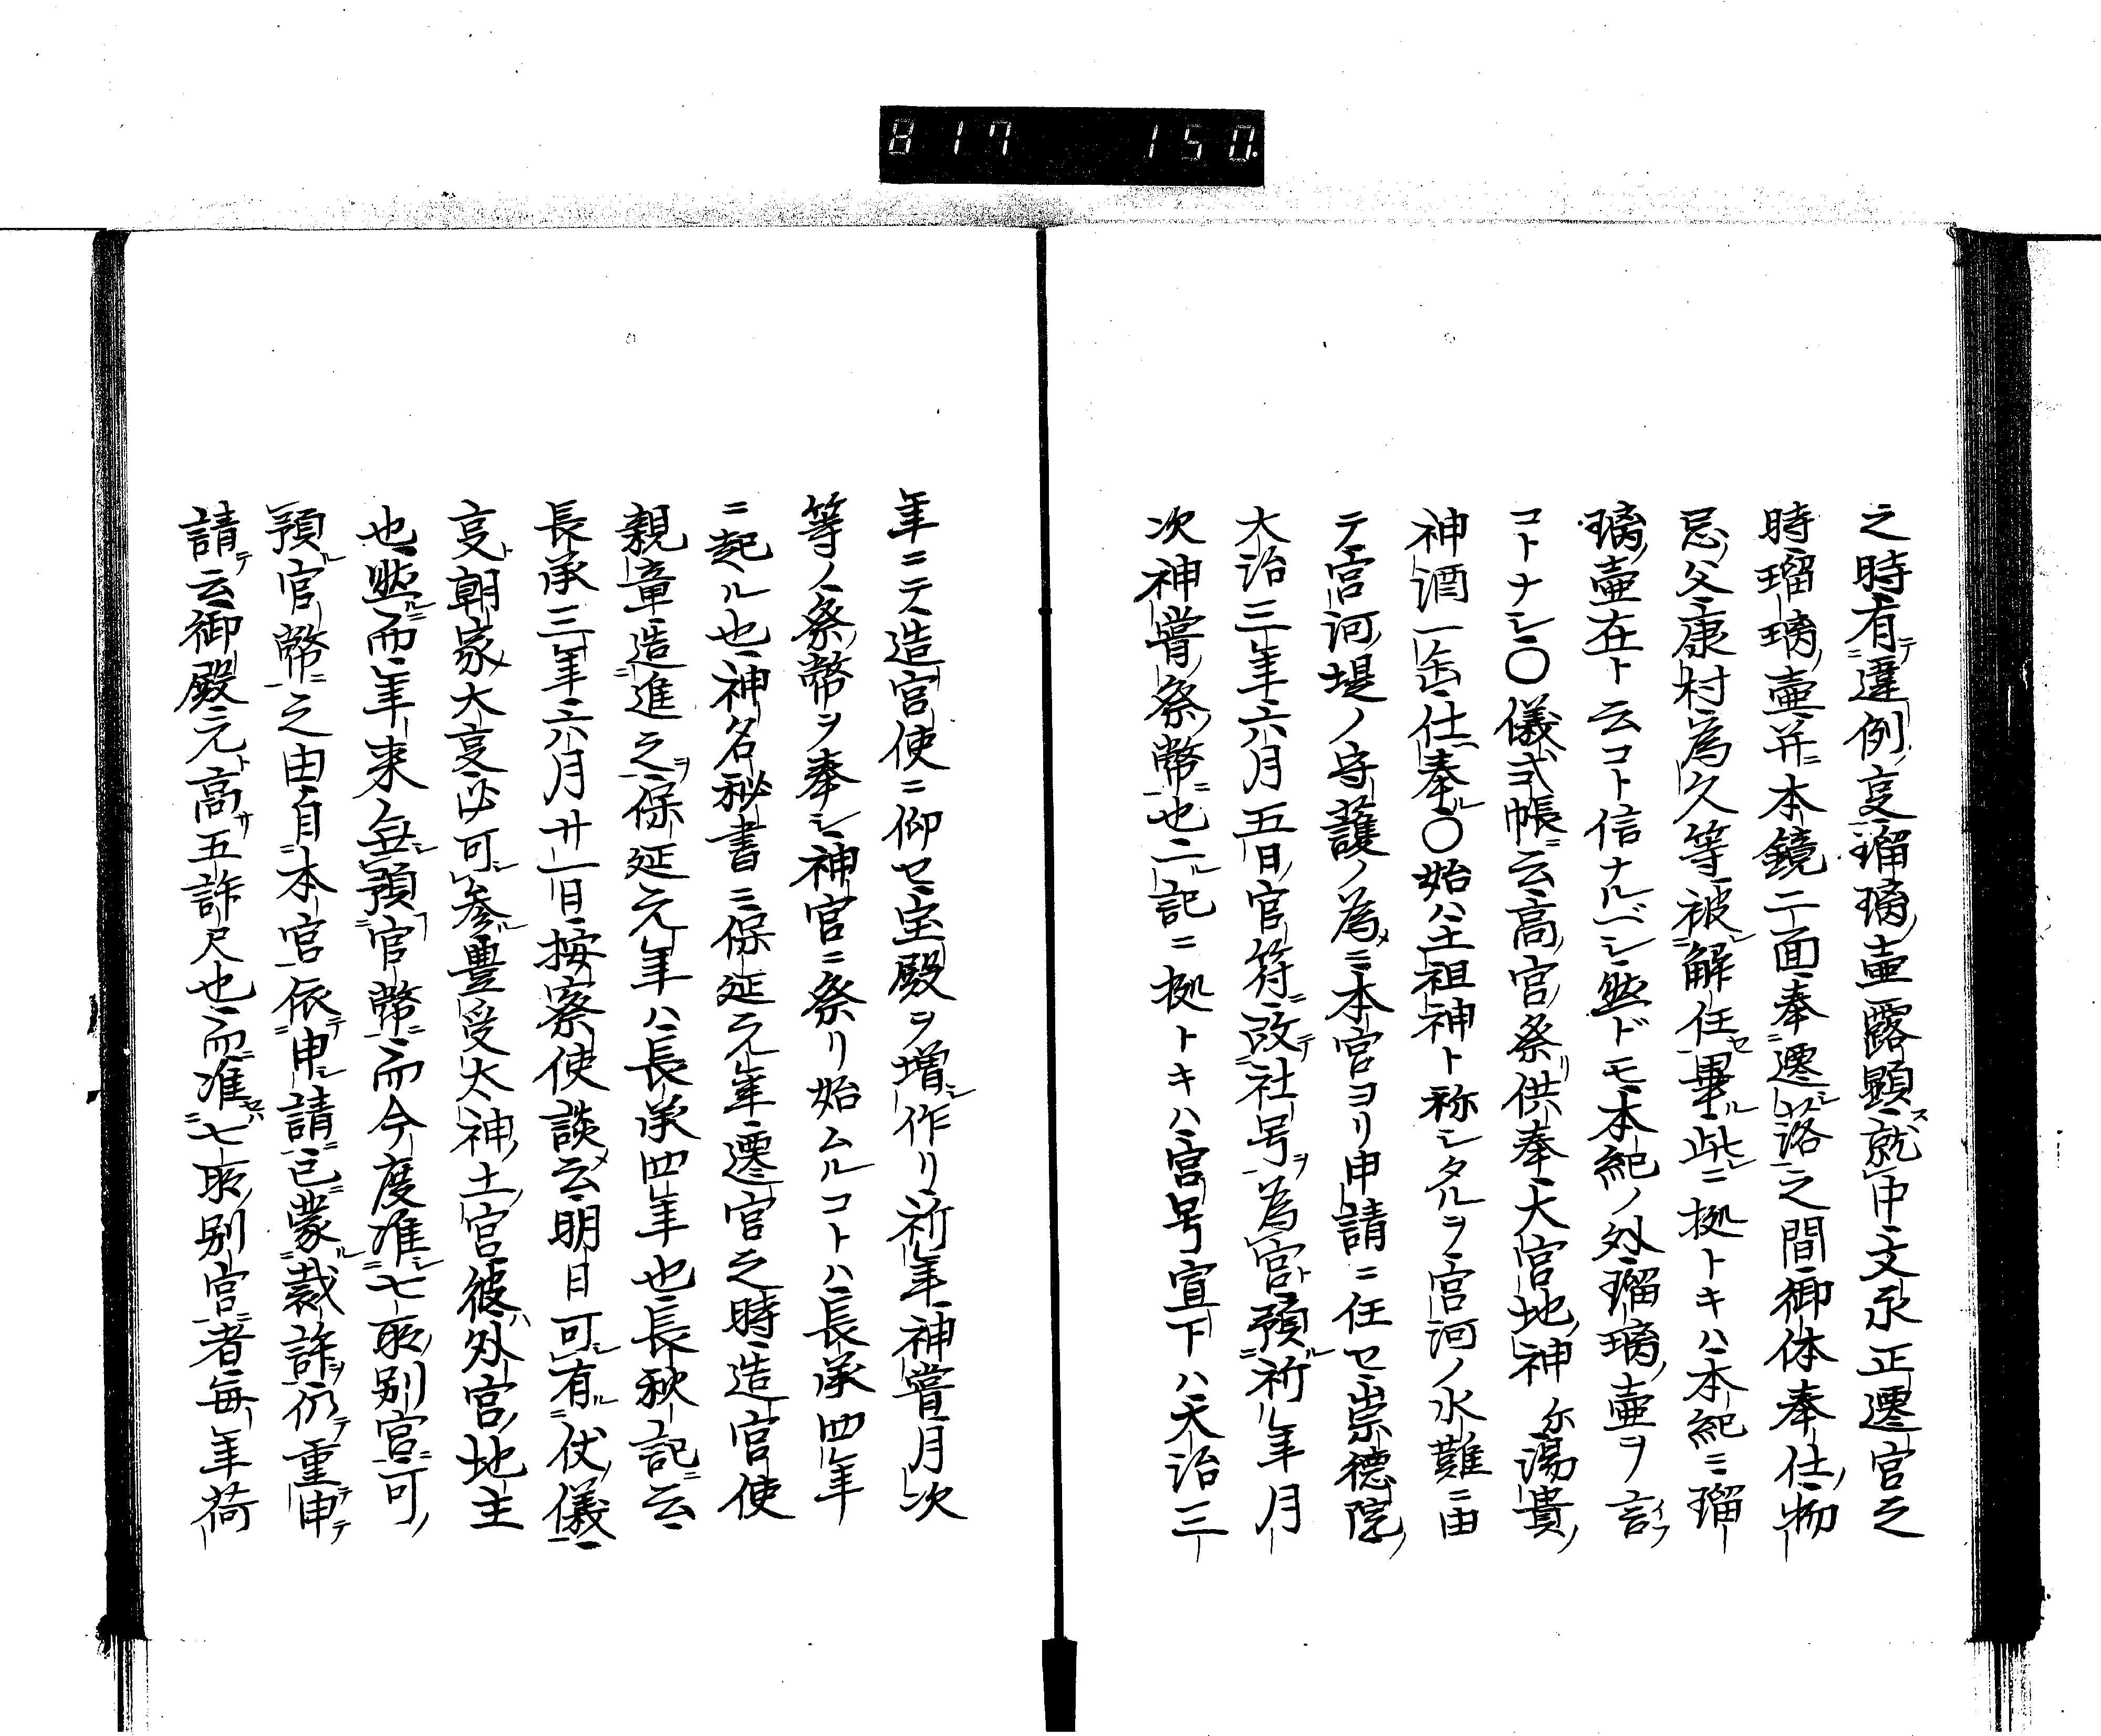 817 150
之時有テ違例ノ事瑠璃ノ壷露顕ス就中文永正遷宮之
時瑠璃ノ壷并ニ本鏡二面奉遷シ落之間御体奉仕ノ物
忌ノ父康村為久等被解任セ畢ル此レニ拠トキハ本紀ニ瑠
璃ノ壷在ト云コト信ナルベシ然ドモ本紀ノ外瑠璃ノ壷ヲ言イフ
コトナシ〇儀式帳ニ云高宮祭リ供奉大宮地ノ神ノ尓湯貴ノ
神酒一缶仕ヘ奉ル〇始ハ土祖神ト称シタルヲ宮河ノ水難ニ由
テ宮河ノ堤ノ守護ノ為メニ本宮ヨリ申請ニ任セ崇徳院ノ
大治三年六月五日ノ官符ニ改テ社号ヲ為宮ト預ル祈年月
次神嘗ノ祭ノ幣ニ也二ル記ニ拠トキハ宮号宣下ハ大治三
年ニテ造宮使ニ仰セ宝殿ヲ増シ作リ祈年神嘗月次
等ノ祭ノ幣ヲ奉シ神官ニ祭リ始ムルコトハ長承四年
ニ起ル也神名秘書ニ保延元年遷宮之時造宮使
親章造進之ヲ保延元年ハ長承四年也長秋記ニ云
長承三年六月廿一日按察使談メ云明日可レ有ル仗ノ儀
事ト朝家ノ大事必可レ参ル豊受太神ノ土ノ宮彼ハ外宮ノ地主
也然ルニ而年来無レ預フ官幣ニ而今度准シ七所ノ別宮ニ可ノ
預ル官幣ニ之由自本宮依テ申シ請ニ已蒙ル裁許ヲ仍テ重テ申テ
請テ云御殿元ト高サ五許尺也而准セハ七所ノ別宮ニ者毎年荷